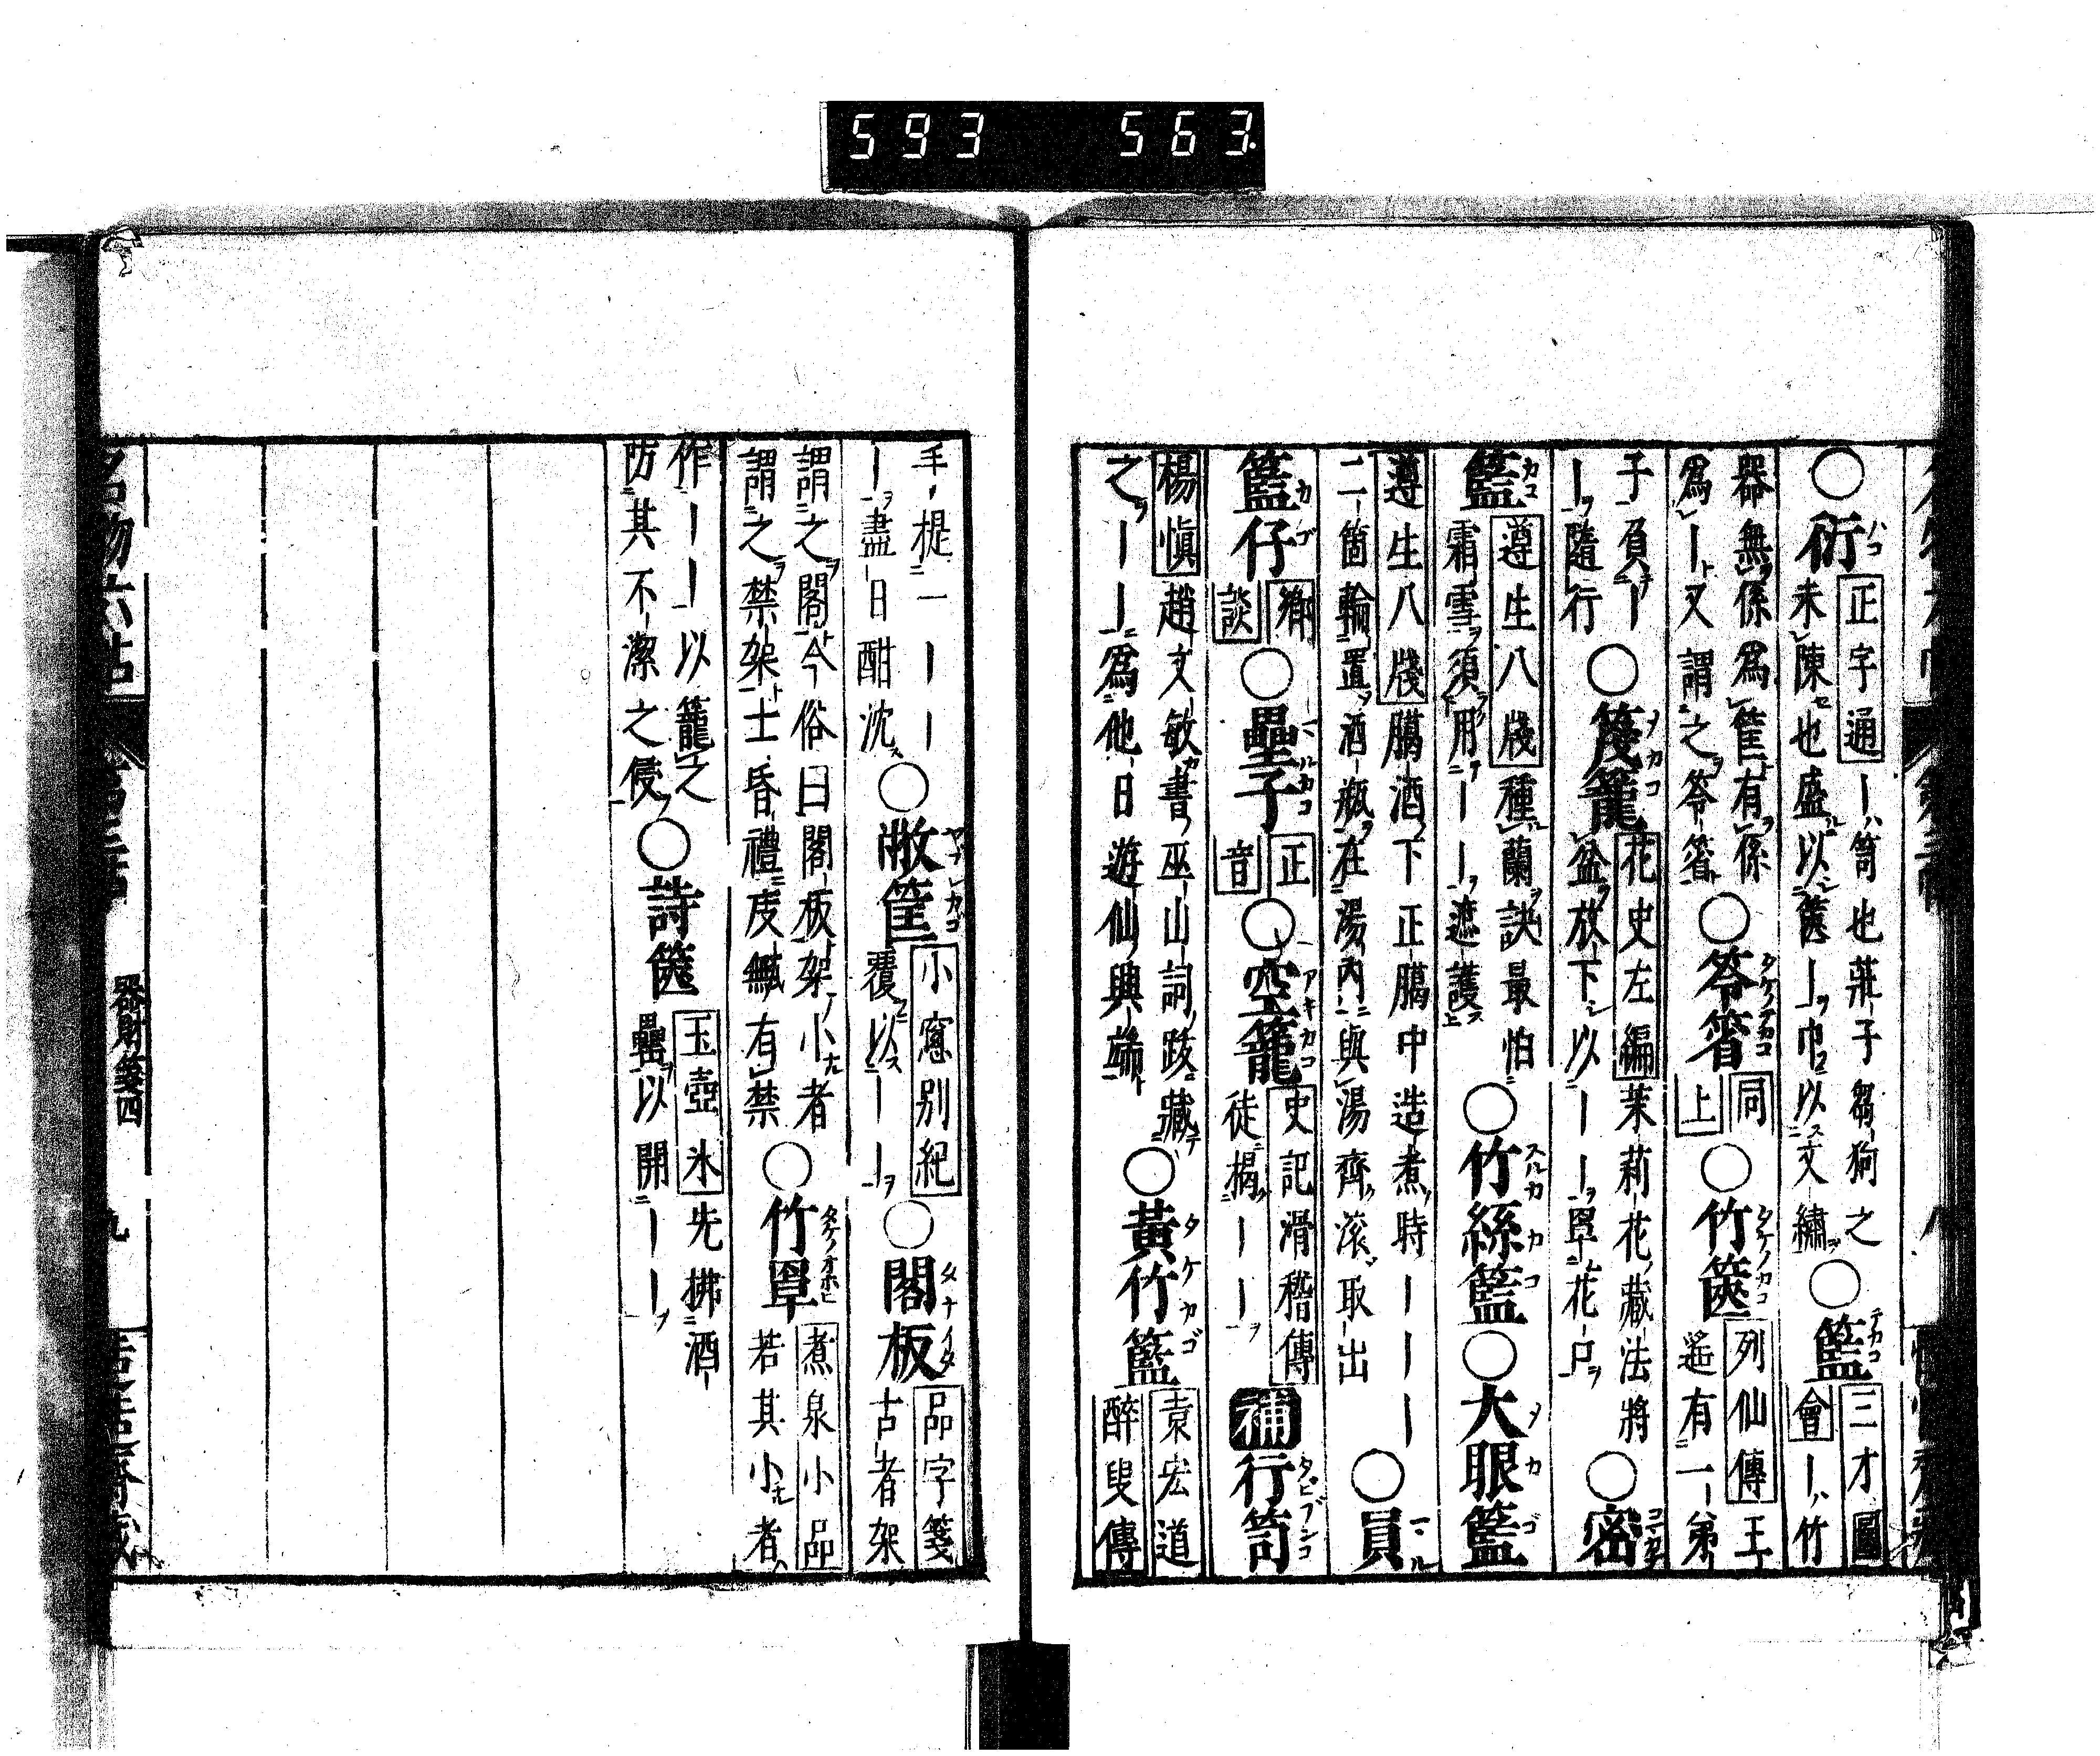 ○衍 正字通 ー笥也莊子芻狗之
未陳也盛以篋ー巾以文繡 ○籃 三才圖
會 ー竹
器無係爲筐有係
爲ー又謂之笭箵 ○笭箵 同
上 ○竹篋 列仙傳 王
遙有一弟
子負ー
ー隨行 ○篾籠 花史左編 茉莉花藏法將
盆放下以ーー罩花口 ○密
籃 遵生八牋 種蘭訣最怕
霜雪須用ーー遮護 ○竹絲籃 ○大眼籃
遵生八牋 臈酒下正臈中造煮時ーーー
二箇輪置酒瓶在湯內與湯齊滾取出 ○員
籃仔 鄉
談 ○壘子 正
音 ○空籠 史記滑稽傳
徒揭ーー 補 行笥
楊愼 趙文敏書巫山詞跋藏
之ーー爲他日遊仙興端 ○黃竹籃 袁宏道
醉叟傳
手提一ーー
ー盡日酣沈 ○敝筐 小窻別紀
覆以ーー ○閣板 品字箋
古者架
謂之閣今俗曰閣板架小者
謂之禁架士昏禮庋甒有禁 ○竹罩 煮泉小品
若其小者
作ーー以籠之
防其不潔之侵 ○詩篋 玉壺冰 先拂酒
罍以開ーー
名物六帖 器財箋四 九
593 563